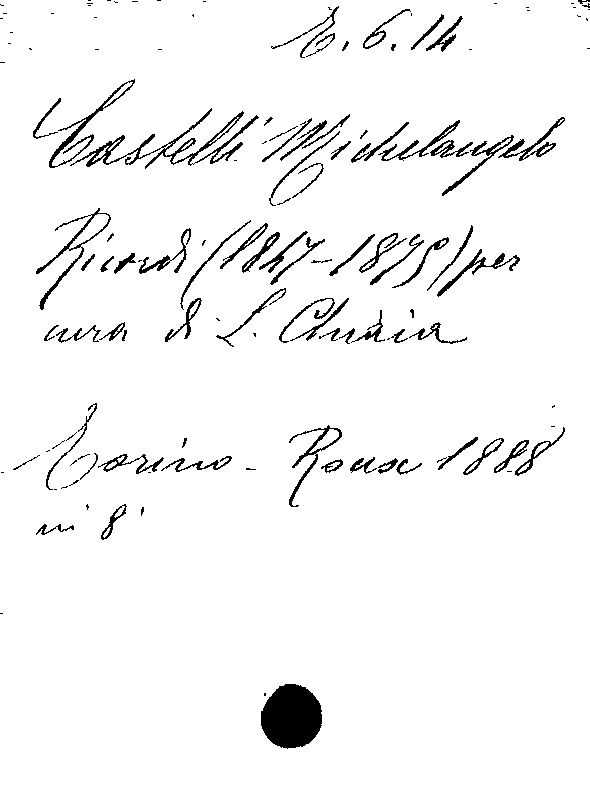 E. 6. 14
Castelli Michelangelo
Ricordi (1847-1875) per
cura di L. Chiala
Torino - Roux 1888
in 8°